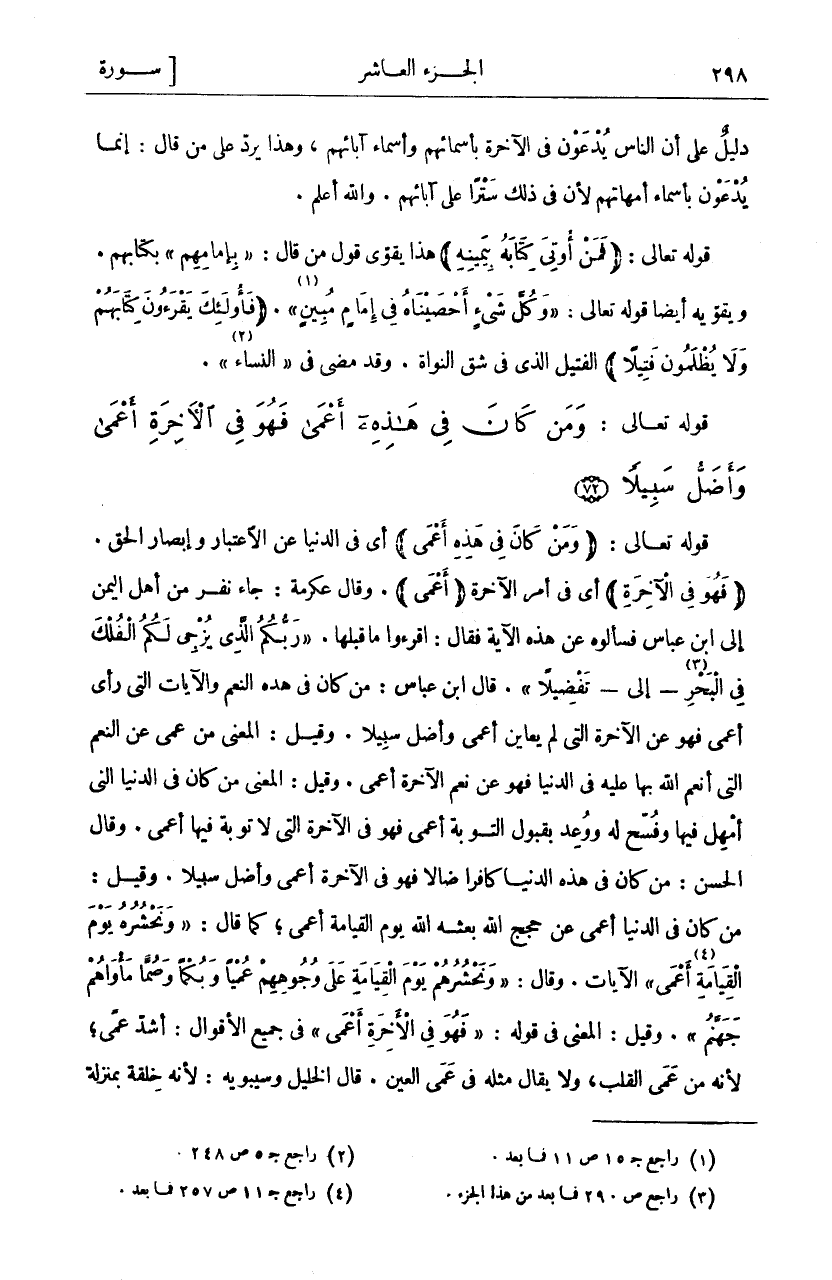 ٢٩٨ الجزء العاشر [ سورة
دليلٌ على أن الناس يُدْعَوْن فى الآخرة بأسمائهم وأسماء آبائهم ، وهذا يردّ على من قال : إنما
يُدْعَوْن بأسماء أمهاتهم لأن فى ذلك سَتْرًا على آبائهم . والله أعلم .
قوله تعالى : ﴿ فَمَنْ أُوتِىَ كِتَابَهُ بِيَمِينِهِ ﴾ هذا يقوّى قول من قال : « بِإمامِهِم » بكتابهم .
ويقوّيه أيضا قوله تعالى : «وَكُلَّ شَىْءٍ أَحْصَيْنَاهُ فِى إِمَامٍ مُبِينٍ(١)» . ﴿ فَأُولَئِكَ يَقْرَءُونَ كِتَابَهُمْ
وَلَا يُظْلَمُون فَتِيلًا ﴾ الفتيل الذى فى شق النواة . وقد مضى فى « النساء(٢) » .
قوله تعالى : وَمَن كَانَ فِى هَـٰذِهِۦٓ أَعْمَىٰ فَهُوَ فِى ٱلْأَخِرَةِ أَعْمَىٰ
وَأَضَلُّ سَبِيلًا ﴿٧٢﴾
قوله تعالى : ﴿ وَمَنْ كَانَ فِى هَذِهِ أَعْمَى ﴾ أى فى الدنيا عن الاعتبار وإبصار الحق .
﴿ فَهُوَ فِى الْآخِرَةِ ﴾ أى فى أمر الآخرة ﴿ أَعْمَى ﴾ . وقال عكرمة : جاء نفر من أهل اليمن
إلى ابن عباس فسألوه عن هذه الآية فقال : اقرءوا ما قبلها . «رَبُّكُمُ الَّذِى يُزْجِى لَكُمُ الْفُلْكَ
فِى الْبَحْرِ — إلى — تَفْضِيلًا(٣) » . قال ابن عباس : من كان فى هذه النعم والآيات التى رأى
أعمى فهو عن الآخرة التى لم يعاين أعمى وأضل سبيلا . وقيل : المعنى من عمى عن النعم
التى أنعم الله بها عليه فى الدنيا فهو عن نعم الآخرة أعمى . وقيل : المعنى من كان فى الدنيا التى
أمْهِل فيها وفُسّح له ووُعِد بقبول التوبة أعمى فهو فى الآخرة التى لا توبة فيها أعمى . وقال
الحسن : من كان فى هذه الدنيا كافرا ضالا فهو فى الآخرة أعمى وأضل سبيلا . وقيل :
من كان فى الدنيا أعمى عن حجج الله بعثه الله يوم القيامة أعمى ؛ كما قال : « وَنَحْشُرُه يَوْمَ
الْقِيَامَةِ أَعْمَى(٤)» الآيات . وقال : «وَنَحْشُرُهُمْ يَوْمَ الْقِيَامَةِ عَلَى وُجُوهِهِمْ عُمْيًا وَبُكْمًا وَصُمًّا مَأْوَاهُمْ
جَهَنَّمُ » . وقيل : المعنى فى قوله : « فَهُوَ فِى الْآخِرَةِ أَعْمَى » فى جميع الأقوال : أشدّ عمًى ؛
لأنه من عَمَى القلب ، ولا يقال مثله فى عَمَى العين . قال الخليل وسيبويه : لأنه خِلقة بمنزلة
(١) راجع جـ ١٥ ص ١١ فما بعد . (٢) راجع جـ ٥ ص ٢٤٨ .
(٣) راجع ص ٢٩٠ فما بعد من هذا الجزء . (٤) راجع جـ ١١ ص ٢٥٧ فما بعد .